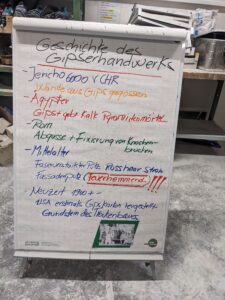 Geschichte des
Gipserhandwerks
- Jericho 6000 v CHR
Wände aus Gips gegossen
- Ägypter
Gips + gebr Kalk Pyramidenmörtel
- Rom
Abgüsse + Fixierung von Knochen-
brüchen
- Mittelalter
Faserverstärkter Putz Rosshaar Stroh
Fassadenputz (feuerhemmend)!!!
- Neuzeit 1900 + -
USA erstmals Gipskarton hergestellt
Grundstein des Trockenbaus